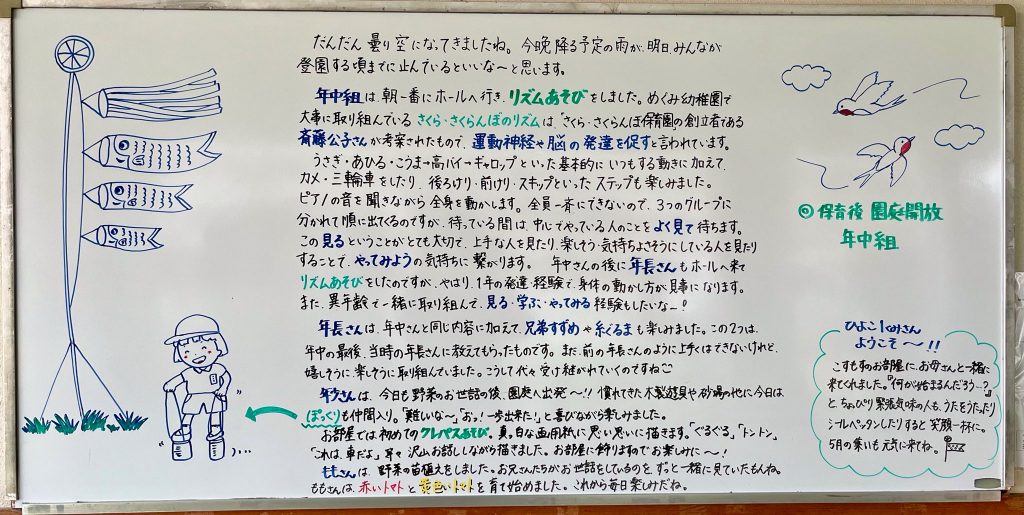 だんだん曇り空になってきましたね。今晩降る予定の雨が、明日、みんなが
登園する頃までに止んでいるといいな〜と思います。
年中組は、朝一番にホールへ行き、リズムあそびをしました。めぐみ幼稚園で
大事に取り組んでいるさくら・さくらんぼのリズムは、"さくら・さくらんぼ保育園"の創立者である
斉藤公子さんが考案されたもので、運動神経や脳の発達を促すと言われています。
うさぎ・あひる・こうま→高バイ→ギャロップといった基本的にいつもする動きに加えて、
カメ・三輪車をしたり、後ろけり・前けり・スキップといったステップも楽しみました。
ピアノの音を聞きながら全身を動かします。全員一斉にできないので、3つのグループに
分かれて順に出てくるのですが、待っている間は、中心でやっている人のことをよく見て待ちます。
この見るということがとても大切で、上手な人を見たり、楽しそう・気持ちよさそうにしている人を見たり
することで、やってみようの気持ちに繋がります。 年中さんの後に年長さんもホールへ来て
リズムあそびをしたのですが、やはり、1年の発達・経験で、身体の動かし方が見事になります。
また、異年齢で一緒に取り組んで、見る・学ぶ・やってみる経験もしたいな〜!
年長さんは、年中さんと同じ内容に加えて、兄弟すずめや糸ぐるまも楽しみました。この2つは、
年中の最後、当時の年長さんに教えてもらったものです。まだ、前の年長さんのように上手くはできないけれど、
嬉しそうに楽しそうに取り組んでいました。こうして代々受け継がれていくのですね
年少さんは、今日も野菜のお世話の後、園庭へ出発〜!! 慣れてきた木製遊具や砂場の他に今日は
ぽっくりも仲間入り。「難しいな〜」「おっ!一歩出来た!」と喜びながら楽しみました。
お部屋では初めてのクレパスあそび。真っ白な画用紙に思い思いに描きます。「ぐるぐる」「トントン」
「これは、車だよ」等々沢山お話ししながら描きました。お部屋に飾りますのでお楽しみに〜!
ももさんは、野菜の苗植えをしました。お兄さんたちがお世話をしているのをずっと一緒に見ていたもんね。
ももさんは、赤いトマトと黄色いトマトを育て始めました。これから毎日楽しみだね。
◎保育後 園庭開放
年中組
ひよこ1くみさん
ようこそ〜!!
こすもすのお部屋に、お母さんと一緒に
来てくれました。『何が始まるんだろう…?』
と、ちょっぴり緊張気味の人も、うたをうたったり
シールペッタンしたりすると笑顔一杯に。
5月の集いも元気に来てね。